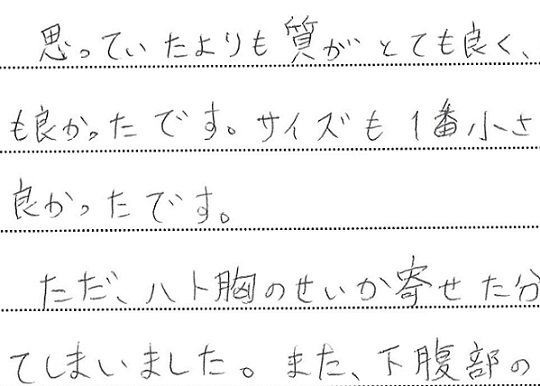 思っていたよりも質がとても良く、
も良かったです。サイズも1番小さ
良かったです。
ただ、ハト胸のせいか寄せた分
てしまいました。また、下腹部の